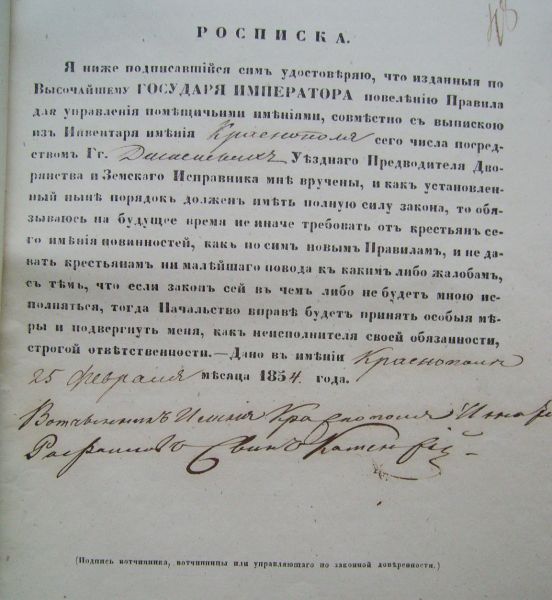 РОСПИСКА.
Я ниже подписавшійся симъ удостовѣряю, что изданныя по
Высочайшему ГОСУДАРЯ ИМПЕРАТОРА повелѣнію Правила
для управленія помѣщичьими имѣніями, совмѣстно съ выпискою
изъ Инвентаря имѣнія Краснополя сего числа посред-
ствомъ Гг. Уѣзднаго Предводителя Дво-
рянства и Земскаго Исправника мнѣ вручены, и какъ установлен-
ный нынѣ порядокъ долженъ имѣть полную силу закона, то обя-
зываюсь на будущее время не иначе требовать отъ крестьянъ се-
го имѣнія повинностей, какъ по симъ новымъ Правиламъ, и не да-
вать крестьянамъ ни малѣйшаго повода къ какимъ либо жалобамъ,
съ тѣмъ, что если законъ сей въ чемъ либо не будетъ мною ис-
полняться, тогда Начальство вправѣ будетъ принять особыя мѣ-
ры и подвергнуть меня, какъ неисполнителя своей обязанности,
строгой отвѣтственности.—Дано въ имѣніи Краснополи
25 февраля мѣсяца 1854. года.
Вотчинникъ Имѣнія Краснополя
(Подпись вотчинника, вотчинницы или управляющаго по законной довѣренности.)